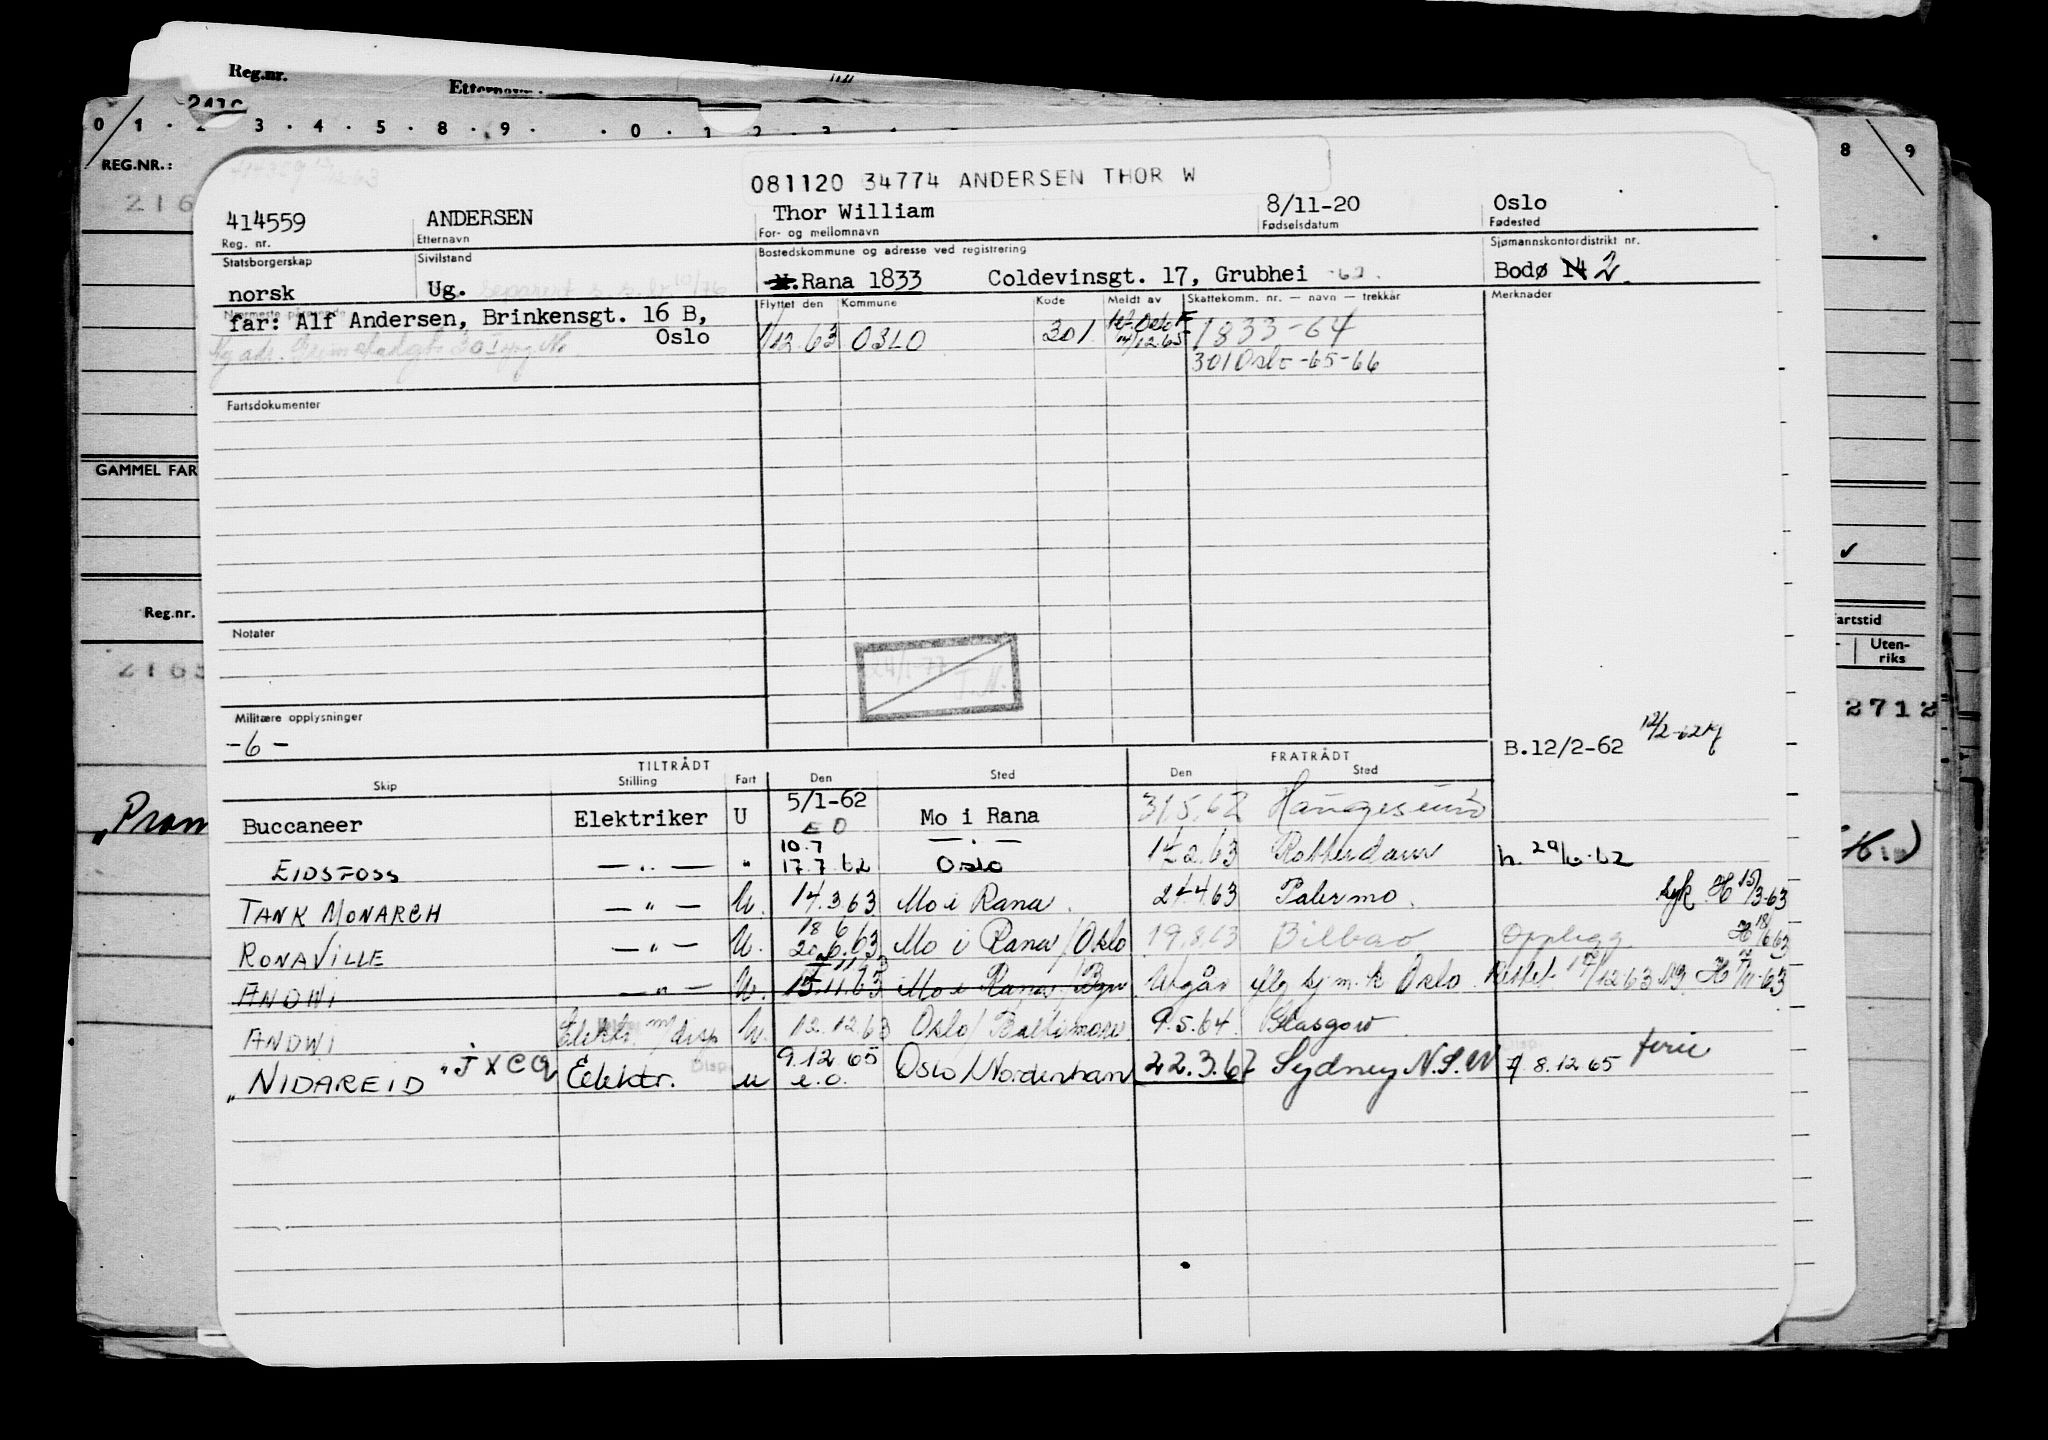 Reg.nr. Etternavn
0 1 2 3 4 5 8 9 0 1 2 3 8 9
REG.NR.:
216
GAMMEL FAR
Reg.nr.
2165
"Pram
artstid
Uten-
riks
2712
081120 34774 ANDERSEN THOR W
414559 ANDERSEN Thor William 8/11-20 Oslo
Reg. nr. Etternavn For- og mellomnavn Fødselsdatum Fødested
Statsborgerskap Sivilstand Bostedskommune og adresse ved registrering Sjømannskontordistrikt nr.
norsk Ug. Rana 1833 Coldevinsgt. 17, Grubhei -62. Bodø 14 2.
Nærmeste pårørende Flyttet den Kommune Kode Meldt av Skattekomm. nr. — navn — trekkår Merknader
far: Alf Andersen, Brinkensgt. 16 B,
Oslo 1/12.63 OSLO 301. 1833-64
301 Oslo -65-66
Fartsdokumenter
Notater
Militære opplysninger
-6-
B.12/2-62 12/2-62
TILTRÅDT FRATRÅDT
Skip Stilling Fart Den Sted Den Sted
Buccaneer Elektriker U 5/1-62 Mo i Rana 31.5.62 Haugesund
EIDSFOSS — " — " 10.7 17.7.62 — " — Oslo 14.2.63 Rotterdam h. 29/6-62
TANK MONARCH — " — U. 14.3.63 Mo i Rana 24.4.63 Palermo. syk H 15/3-63
RONAVILLE — " — U. 18 6 20.6.63 Mo i Rana/Oslo 19.8.63 Bilbao Opplegg H 18/6 63
ANDWI — " — U. 15.11.63 Mo i Rana/Bgn Utgår iflg sjm.k Oslo
ANDWI Elektr. m/disp U. 12.12.63 Oslo/Baltimore 9.5.64 Glasgow
"NIDAREID" JXCQ Elektr. Disp. u 9.12 65 e.o. Oslo/Nordenham 22.3.67 Sydney N.S.W 8.12 65 ferie